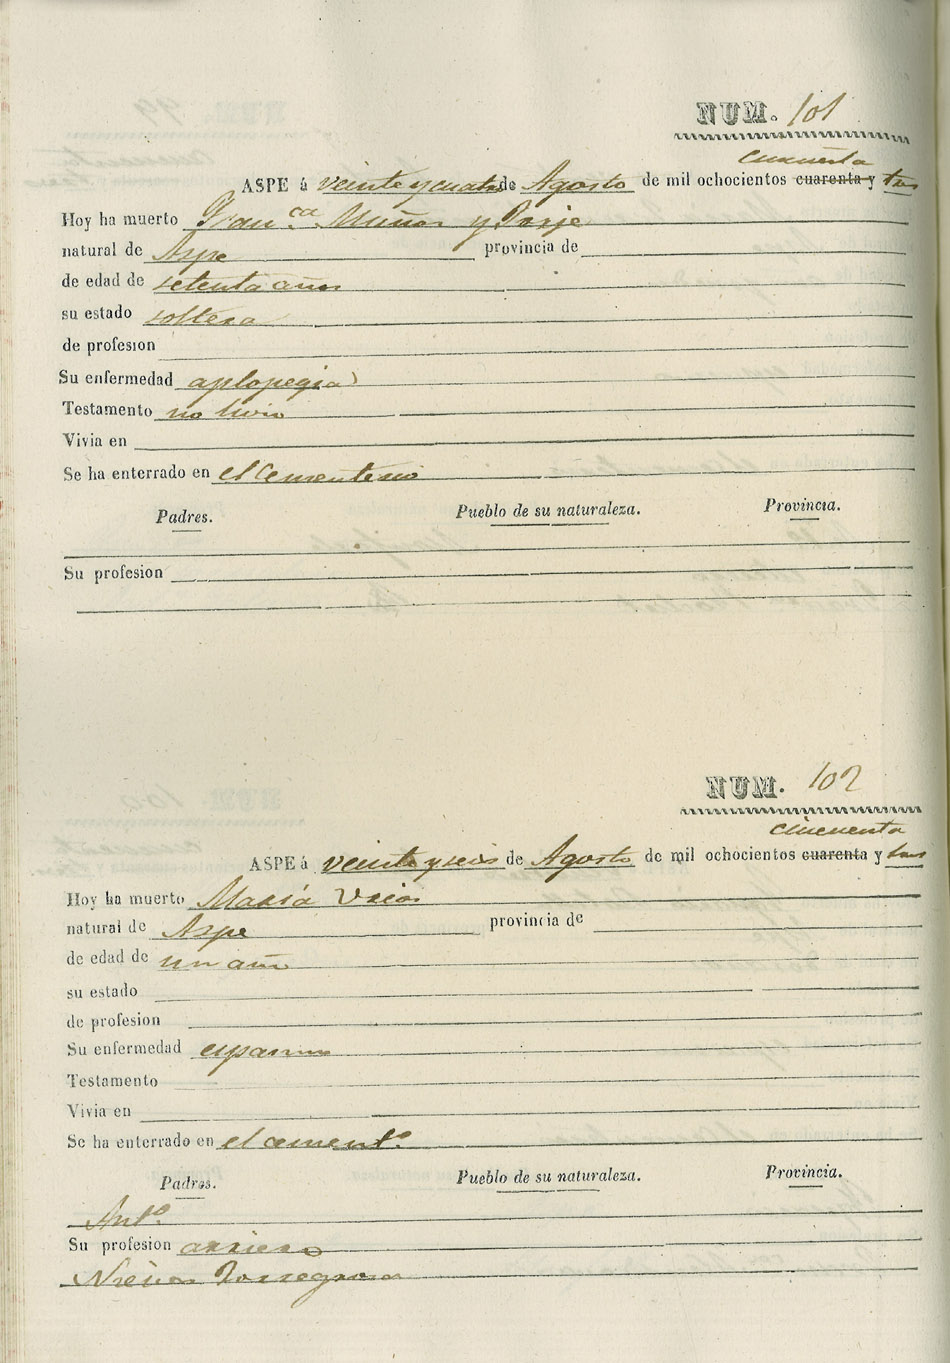 NUM. 101
cincuenta
ASPE á veinte y cuatro de Agosto de mil ochocientos cuarenta y tres
Hoy ha muerto Fran.ca Muñoz y
natural de Aspe provincia de
de edad de setenta años
su estado soltera
de profesion
Su enfermedad aplopegia
Testamento no hizo
Vivia en
Se ha enterrado en el Cementerio
Padres. Pueblo de su naturaleza. Provincia.
Su profesion
NUM. 102
cincuenta
ASPE á veinte y seis de Agosto de mil ochocientos cuarenta y tres
Hoy ha muerto Maria
natural de Aspe provincia de
de edad de un año
su estado
de profesion
Su enfermedad espasmo
Testamento
Vivia en
Se ha enterrado en el cement.o
Padres. Pueblo de su naturaleza. Provincia.
Ant.o
Su profesion arriero
Nieves